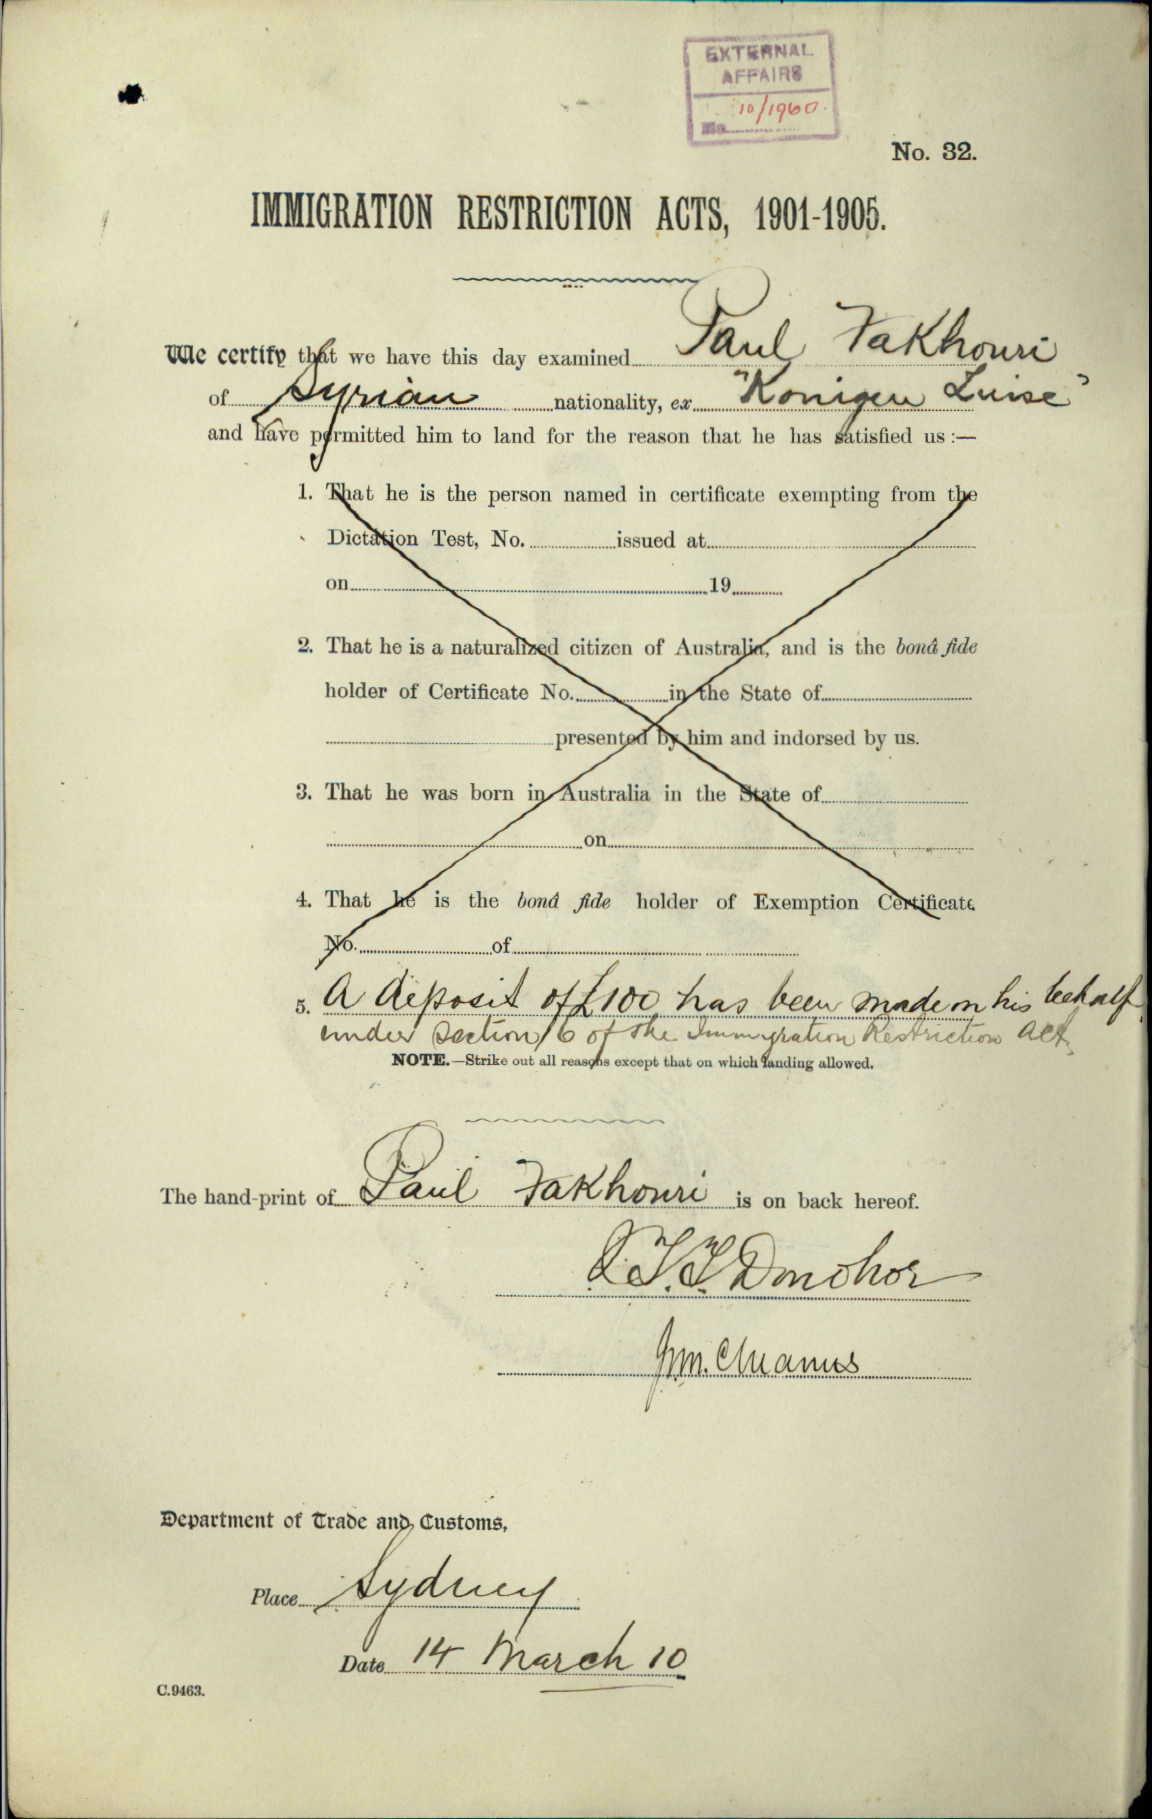 EXTERNAL
AFFAIRS
No. 10/1960.
No. 32.
IMMIGRATION RESTRICTION ACTS, 1901-1905.
We certify that we have this day examined Paul Fakhouri
of Syrian nationality, ex "Konigen Luise"
and have permitted him to land for the reason that he has satisfied us :—
1. That he is the person named in certificate exempting from the
Dictation Test, No. issued at
on 19
2. That he is a naturalized citizen of Australia, and is the bonâ fide
holder of Certificate No. in the State of
presented by him and indorsed by us.
3. That he was born in Australia in the State of
on
4. That he is the bonâ fide holder of Exemption Certificate
No. of
5. A deposit of £100 has been made on his behalf
under section 6 of the Immigration Restriction Act.
NOTE.—Strike out all reasons except that on which landing allowed.
The hand-print of Paul Fakhouri is on back hereof.
Donohoe
Department of Trade and Customs,
Place Sydney
Date 14 March 10
C.9463.